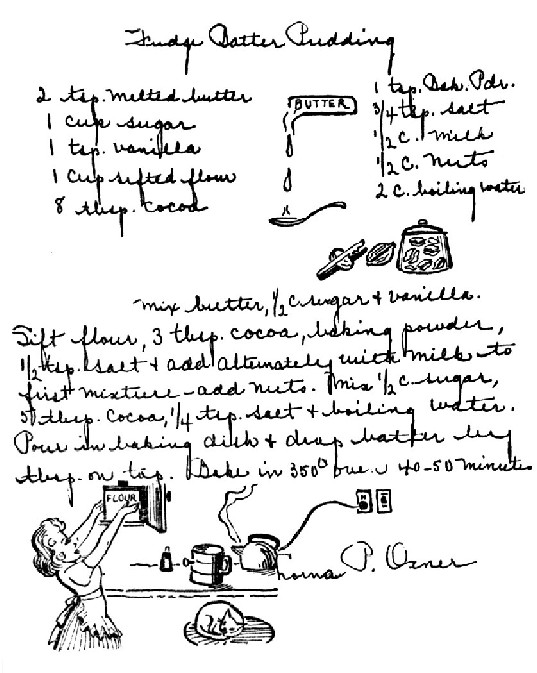 Fudge Batter Pudding
2 tsp. melted butter
1 cup sugar
1 tsp. vanilla
1 cup sifted flour
8 tbsp. cocoa
BUTTER
1 tsp. Bak. Pdr.
3/4 tsp. salt
1/2 c. milk
1/2 c. nuts
2 c. boiling water
Mix butter, 1/2 c sugar + vanilla.
Sift flour, 3 tbsp. cocoa, baking powder,
1/2 tsp. salt + add alternately with milk to
first mixture - add nuts. Mix 1/2 c sugar,
5 tbsp. cocoa, 1/4 tsp. salt + boiling water.
Pour in baking dish + drop batter by
tbsp. on top. Bake in 350° 40-50 minutes
FLOUR
P. Ozner